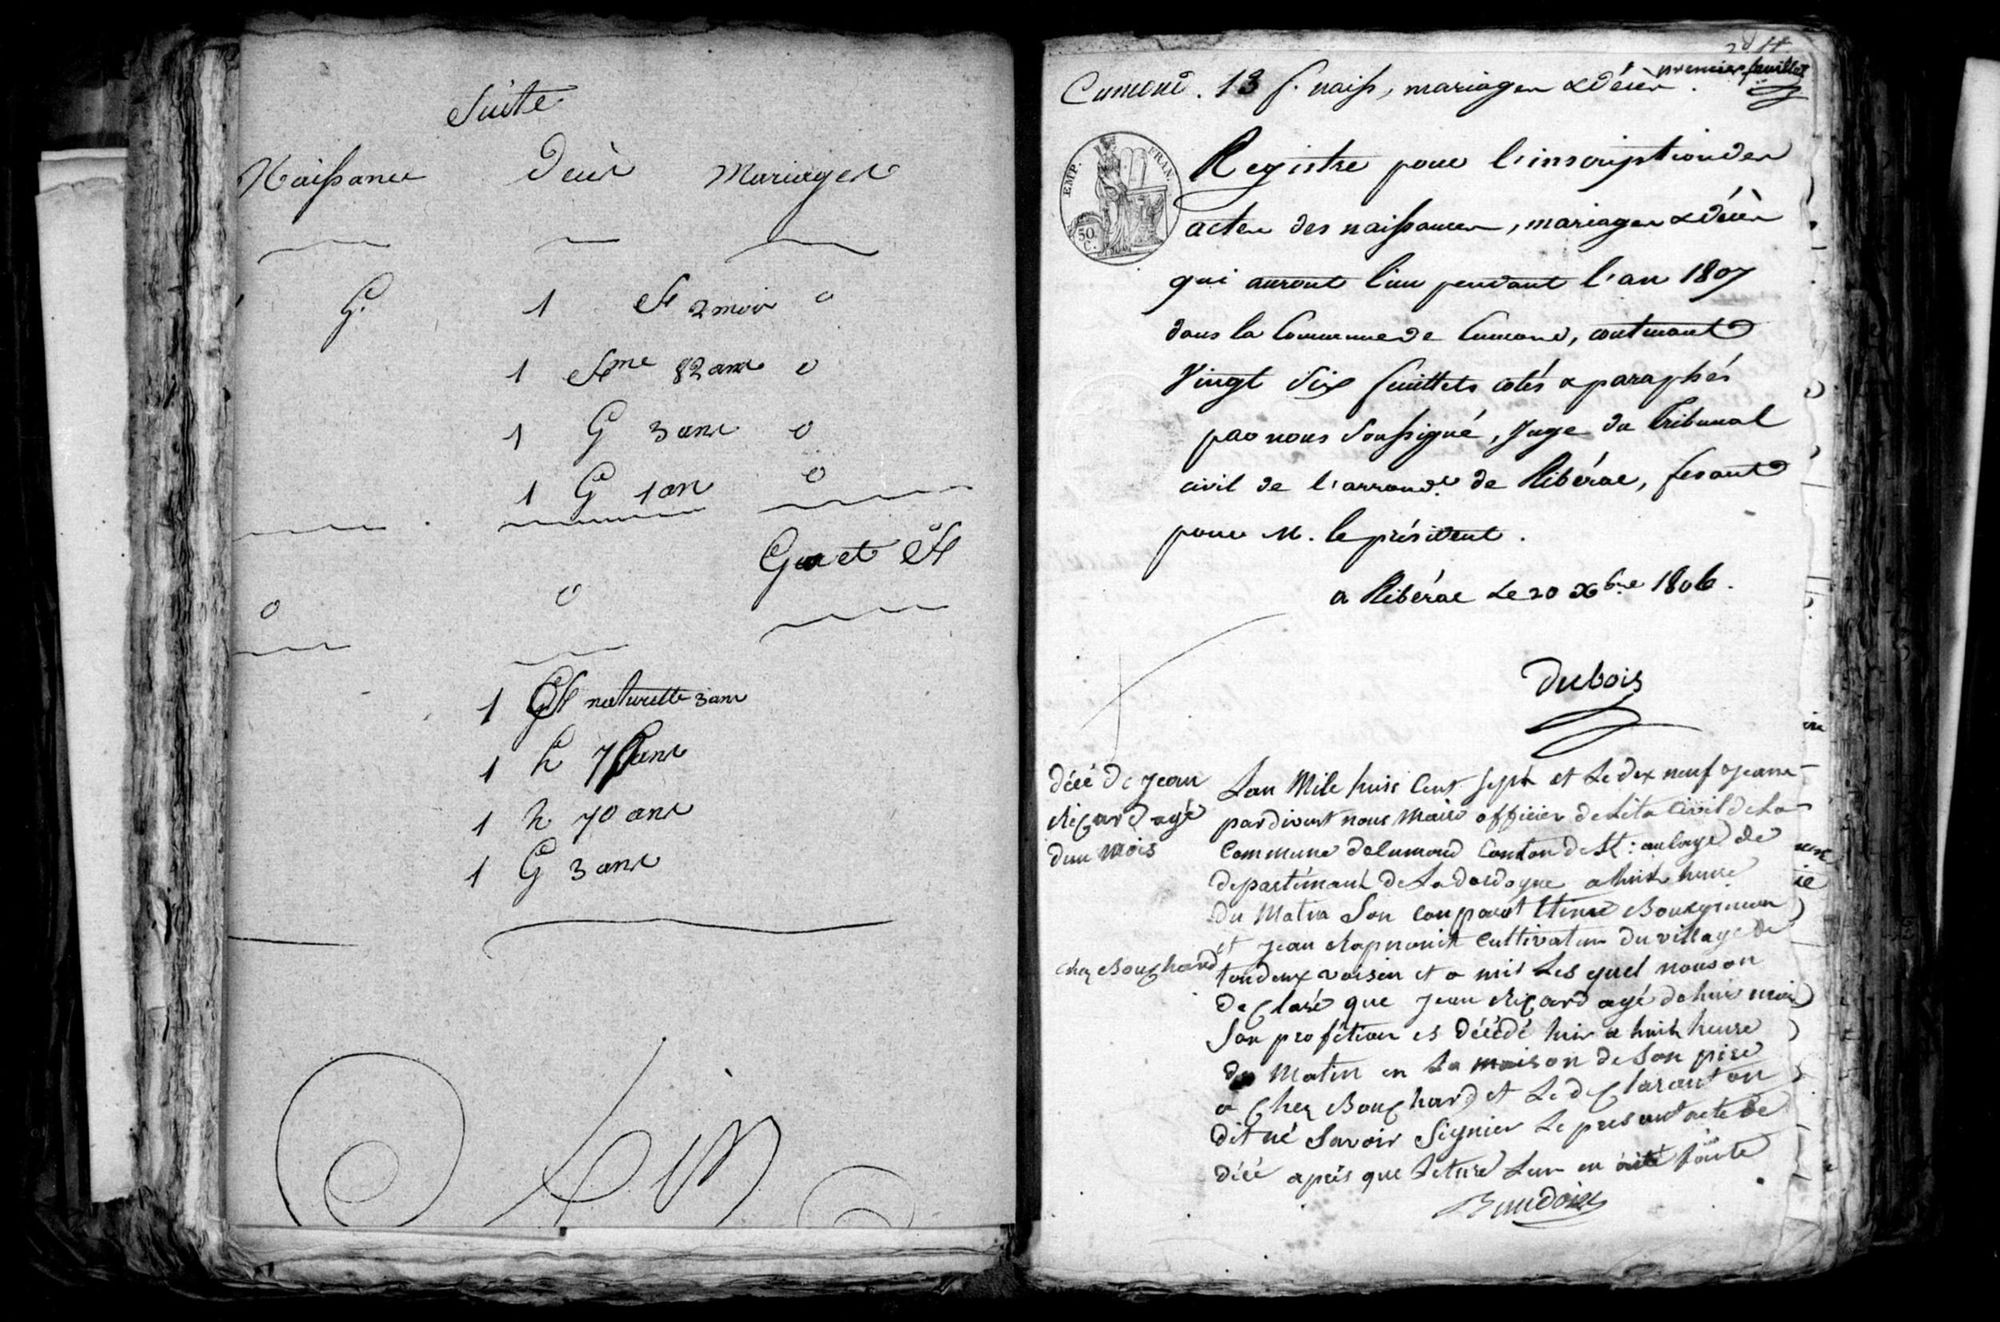 Suite
Naissance Décès Mariages
G. 1 f 2 mois o
1 fme 82 ans o
1 G 3 ans o
1 G 1 an o
o o G et f
1 f naturelle 3 ans
1 h ans
1 h 70 ans
1 G 3 ans
Fin
Cumond. 13 f. naiss, mariages & décès. premier feuillet
EMP. FRAN.
50 C.
Registre pour l'inscription des
actes des naissances, mariages & décès
qui auront lieu pendant l'an 1807
dans la Commune de Cumond, contenant
Vingt Six feuillets cotés & paraphés
par nous Soussigné, Juge du Tribunal
civil de l'arrond.t de Ribérac, fesant
pour M. le président.
a Ribérac Le 20 Xbre 1806.
Dubois
décé de jean
Ricard agé
dun mois
Lan Mile huit Cent Sept et Le dix neuf Jeanv
par divant nous Maire officier de Léta Civil de La
Commune de Cumond Canton de St: aulaye de
departemant de La dordogne a huit heure
du Matin Son Conparut Etiene Bourgrinon
et jean Cultivateur du village de
chez Bouchard
voisin et a mit Les quel nous on
de Claré que jean Ricard agé de huit mois
Son profétion es décédé hier a huit heure
du Matin en La maison de Son pire
a Chez Bouchard et Le de Clarant on
dit né Savoir Signier Le present acte de
décé après que Lecture Leur en été foite
Baudoin